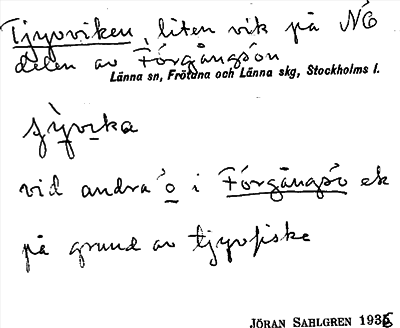 Tjyvviken, liten vik på NÖ
delen av Förgångsön
Länna sn, Frötuna och Länna skg, Stockholms l.
vid andra o i Förgångsö ek
på grund av tjyvfiske
JÖRAN SAHLGREN 1935